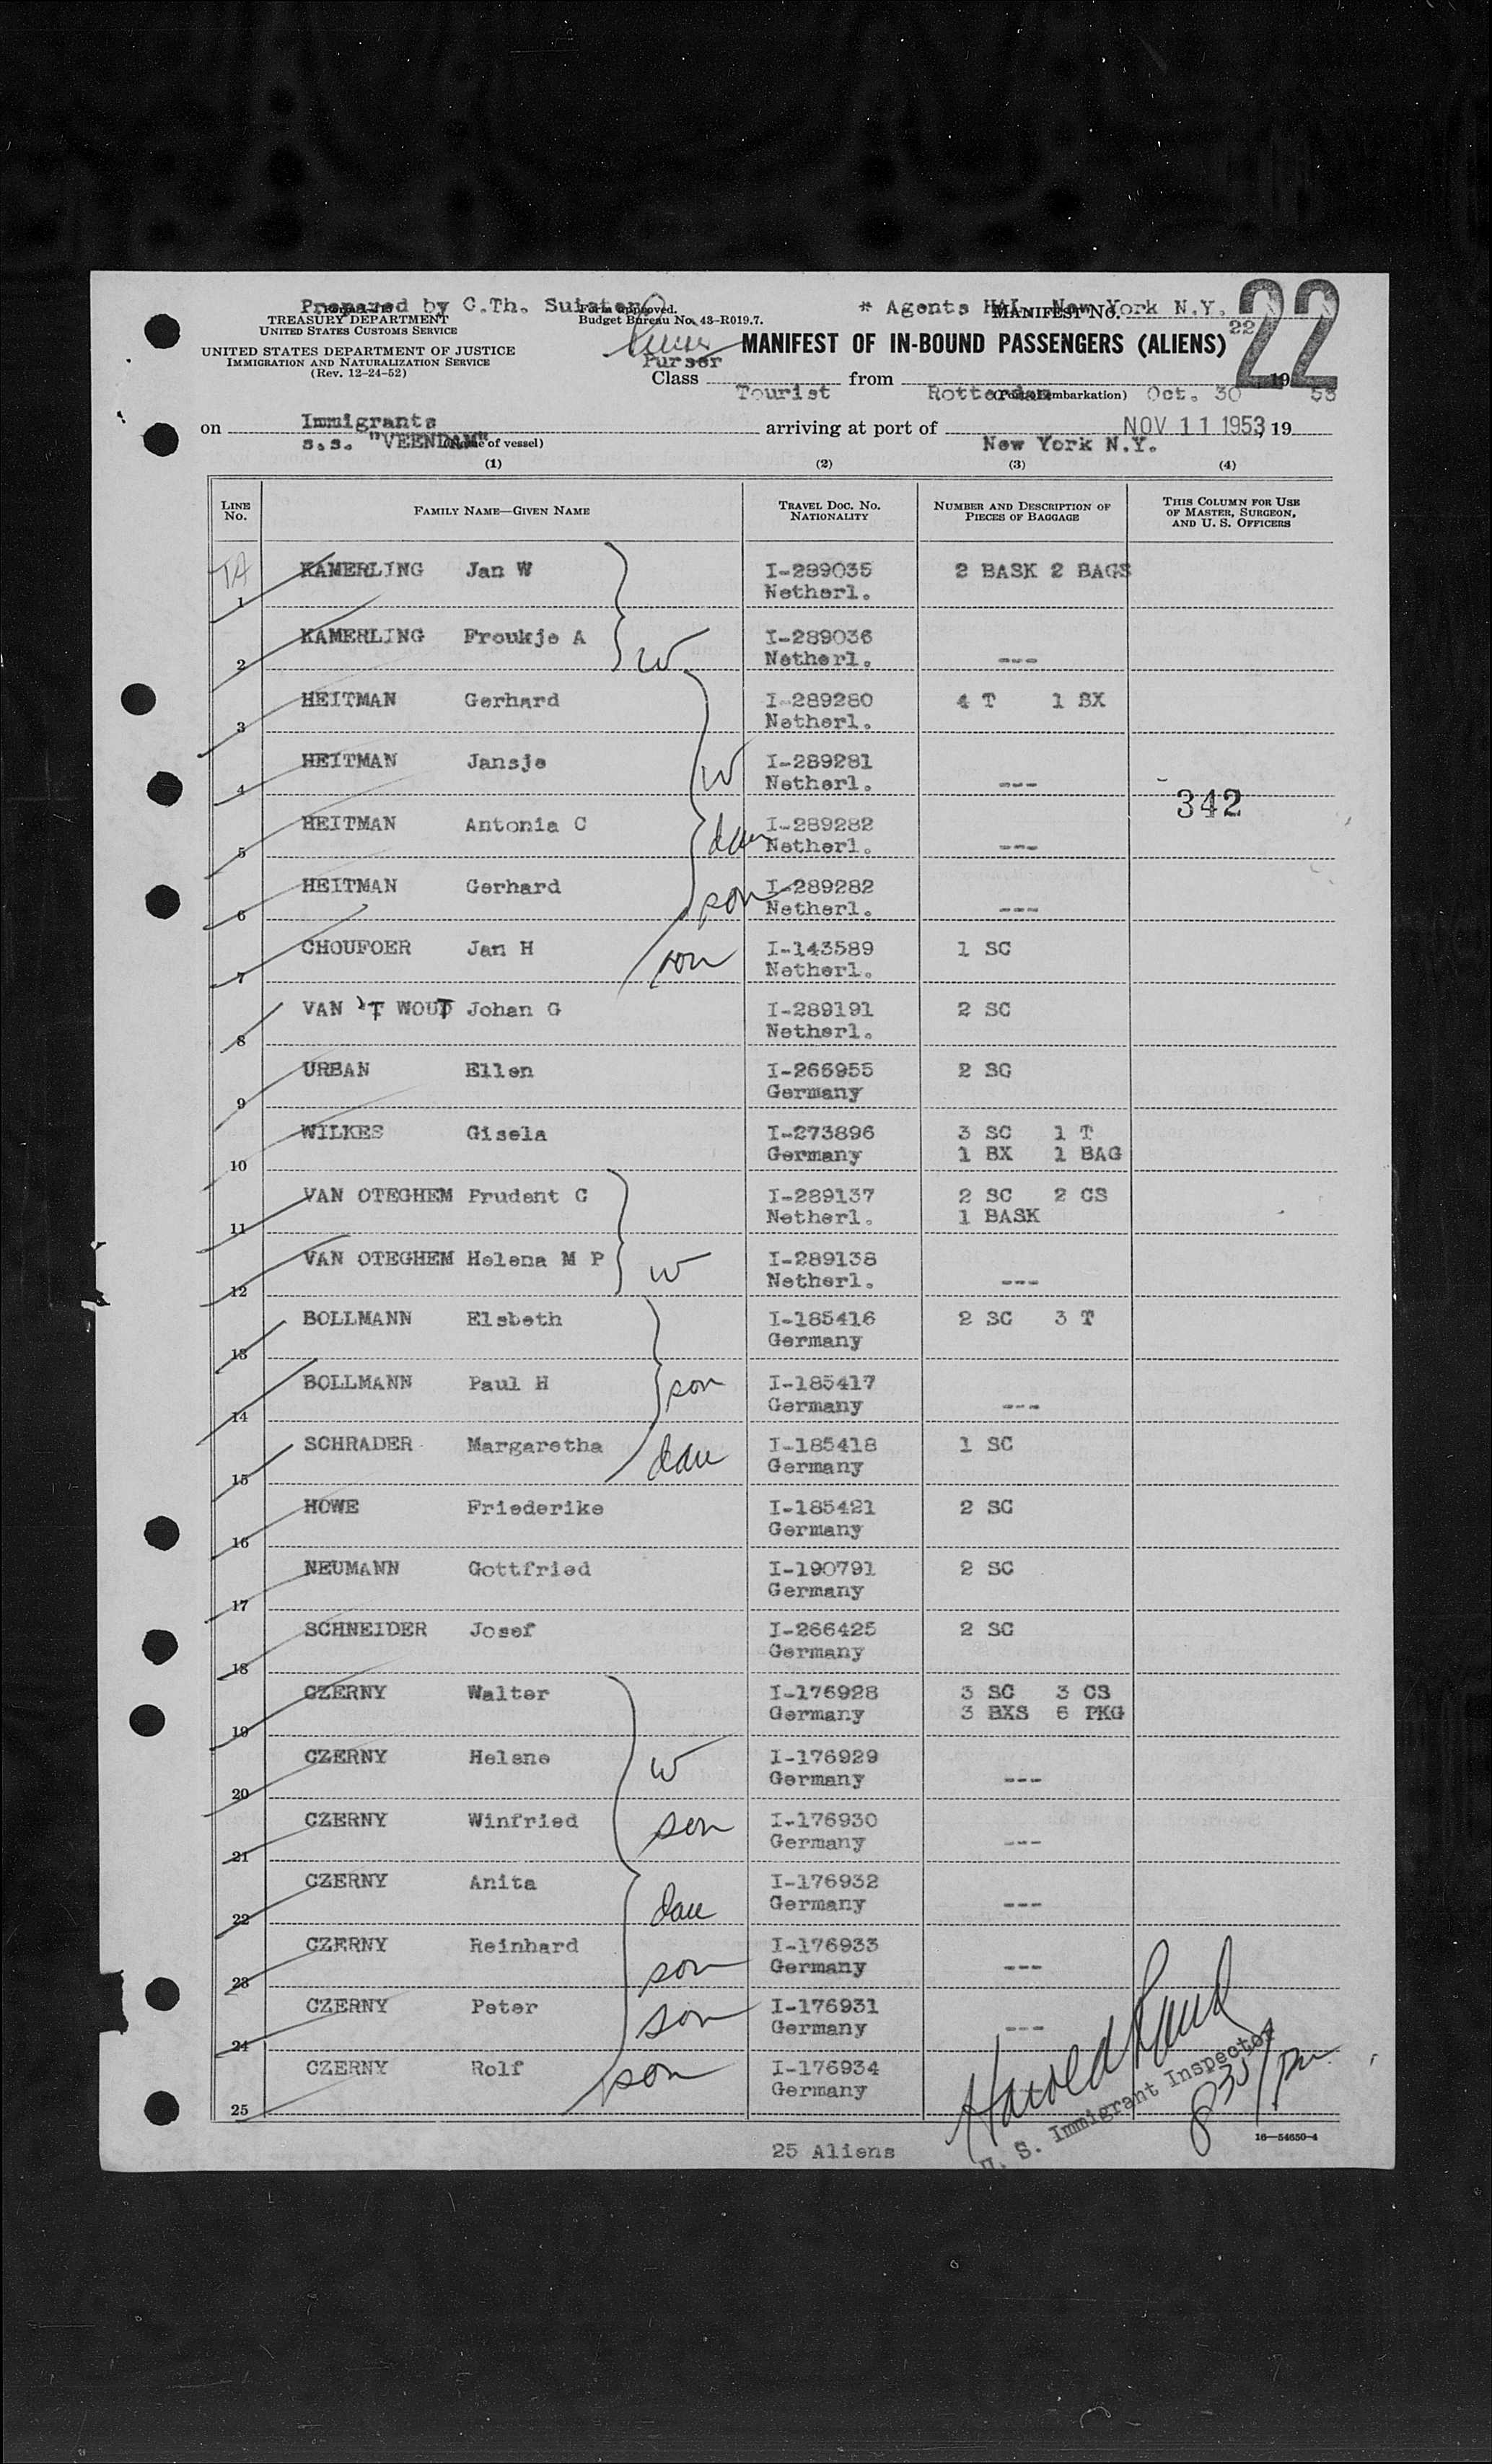 Prepared by C.Th. Suister
* Agents HAL. New York N.Y.
MANIFEST NO.
22
22
TREASURY DEPARTMENT
UNITED STATES CUSTOMS SERVICE
Form approved.
Budget Bureau No. 43-R019.7.
UNITED STATES DEPARTMENT OF JUSTICE
IMMIGRATION AND NATURALIZATION SERVICE
(Rev. 12-24-52)
Purser
MANIFEST OF IN-BOUND PASSENGERS (ALIENS)
Class Tourist from Rotterdam Oct. 30 1953
(Port of embarkation)
on Immigrants s.s. "VEENDAM" arriving at port of New York N.Y. NOV 11 1953, 19
(Name of vessel)
(1) (2) (3) (4)
LINE NO. FAMILY NAME—GIVEN NAME TRAVEL DOC. NO. NATIONALITY NUMBER AND DESCRIPTION OF PIECES OF BAGGAGE THIS COLUMN FOR USE OF MASTER, SURGEON, AND U. S. OFFICERS
1 KAMERLING Jan W I-289035 Netherl. 2 BASK 2 BAGS
2 KAMERLING Froukje A W I-289036 Netherl. ---
3 HEITMAN Gerhard I-289280 Netherl. 4 T 1 BX
4 HEITMAN Jansje W I-289281 Netherl. ---
342
5 HEITMAN Antonia C dau I-289282 Netherl. ---
6 HEITMAN Gerhard son I-289282 Netherl. ---
7 CHOUFOER Jan H son I-143589 Netherl. 1 SC
8 VAN 'T WOUT Johan G I-289191 Netherl. 2 SC
9 URBAN Ellen I-266955 Germany 2 SC
10 WILKES Gisela I-273896 Germany 3 SC 1 T 1 BX 1 BAG
11 VAN OTEGHEM Prudent C I-289137 Netherl. 2 SC 2 CS 1 BASK
12 VAN OTEGHEM Helena M P W I-289138 Netherl. ---
13 BOLLMANN Elsbeth I-185416 Germany 2 SC 3 T
14 BOLLMANN Paul H son I-185417 Germany ---
15 SCHRADER Margaretha dau I-185418 Germany 1 SC
16 HOWE Friederike I-185421 Germany 2 SC
17 NEUMANN Gottfried I-190791 Germany 2 SC
18 SCHNEIDER Josef I-266425 Germany 2 SC
19 CZERNY Walter I-176928 Germany 3 SC 3 CS 3 BXS 6 PKG
20 CZERNY Helene W I-176929 Germany ---
21 CZERNY Winfried son I-176930 Germany ---
22 CZERNY Anita dau I-176932 Germany ---
23 CZERNY Reinhard son I-176933 Germany ---
24 CZERNY Peter son I-176931 Germany ---
25 CZERNY Rolf son I-176934 Germany
U. S. Immigrant Inspector
16—54650-4
25 Aliens